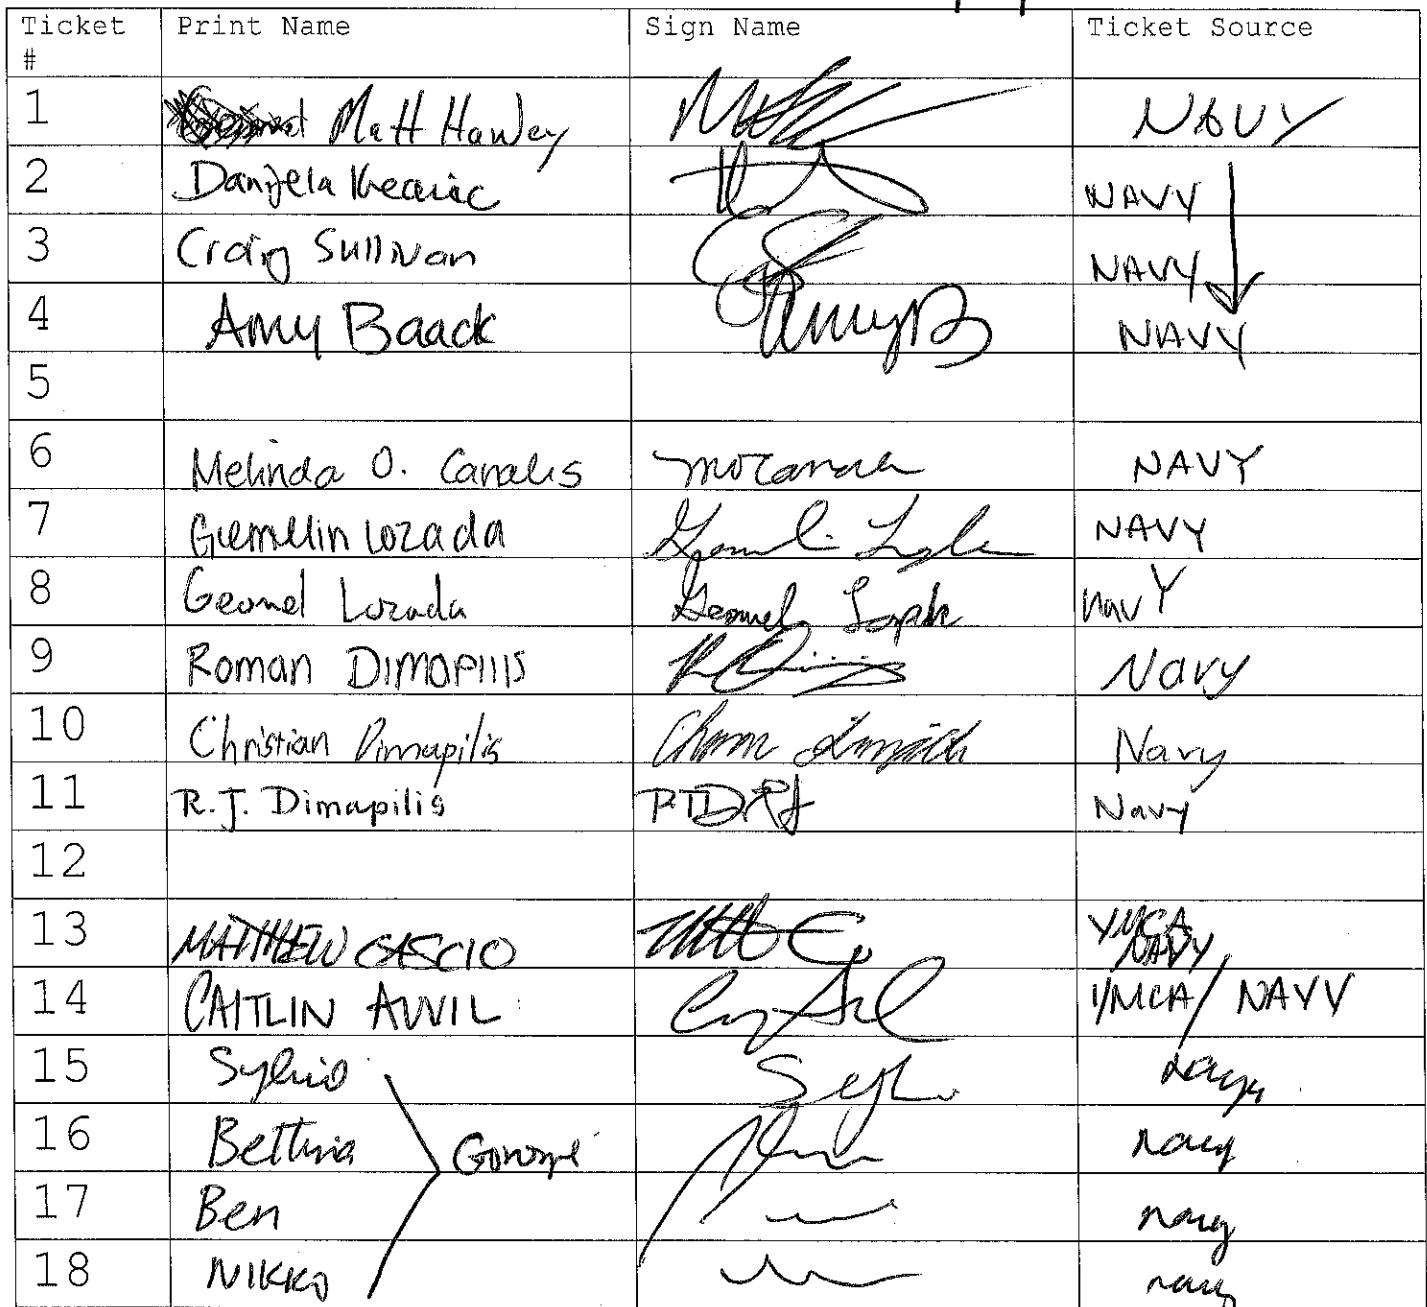 Ticket # Print Name Sign Name Ticket Source
1 Matt Hawley NAVY
2 Danijela NAVY
3 Craig Sullivan NAVY
4 Amy Baack AmyB NAVY
5
6 Melinda O. Canalis NAVY
7 Giemelin Lozada NAVY
8 Geomel Lozada Geomel NavY
9 Roman DIMAPILIS Navy
10 Christian Dimapilis Navy
11 R.J. Dimapilis Navy
12
13 MATTHEW CASCIO YMCA NAVY
14 CAITLIN AVVIL YMCA/NAVY
15 Sylvio navy
16 Bettina navy
17 Ben navy
18 NIKKO navy